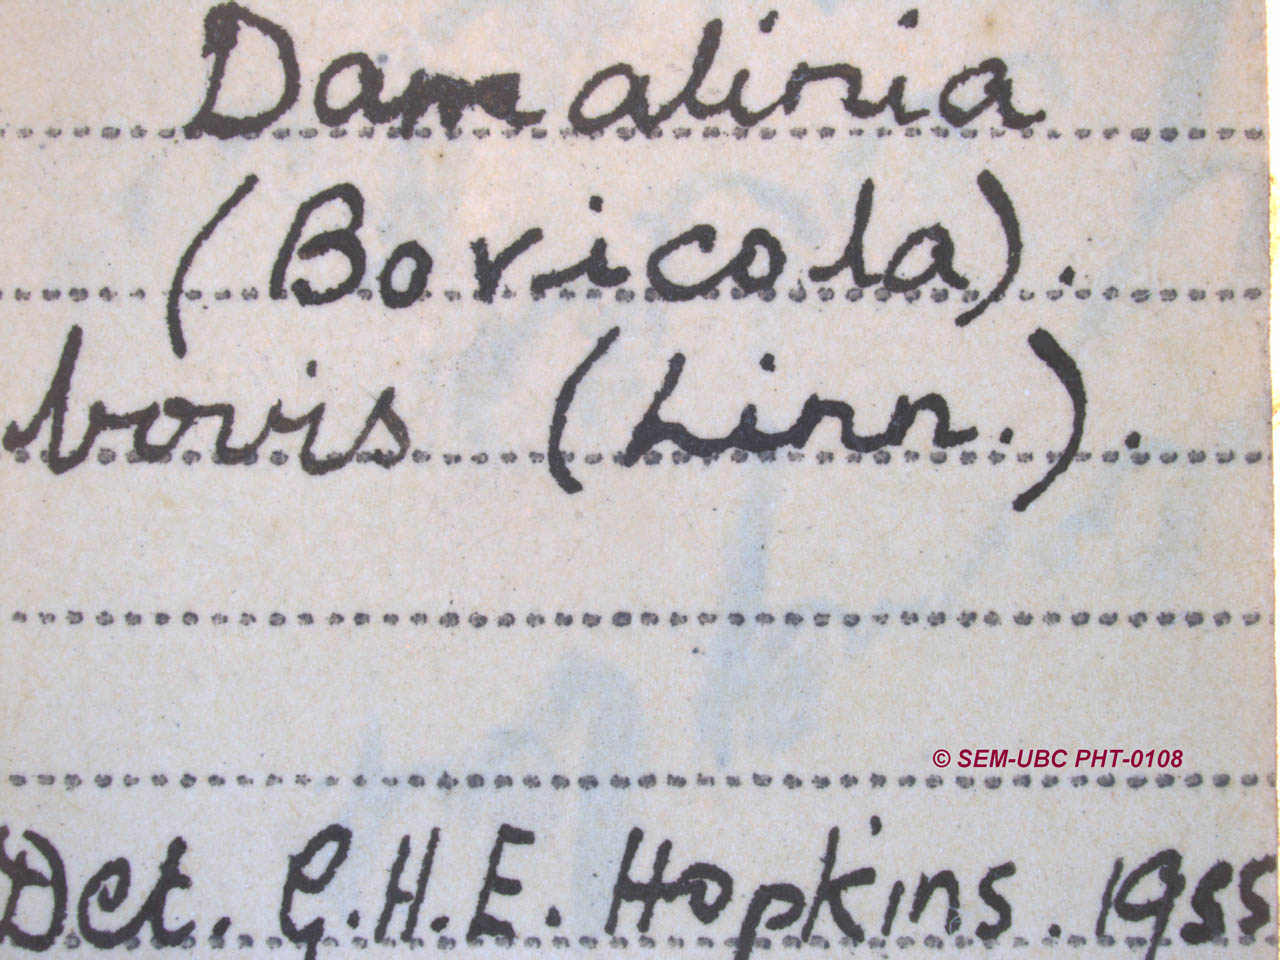 Damalinia
(Bovicola).
bovis (Linn.).
© SEM-UBC PHT-0108
Det. G.H.E. Hopkins. 1955